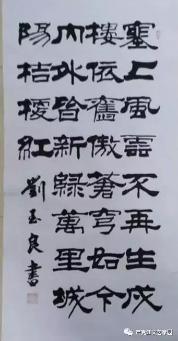 塞上風雲不再生戍
樓依舊傲蒼穹如今
內外皆新綠萬里城
陽桔紅
劉玉良書